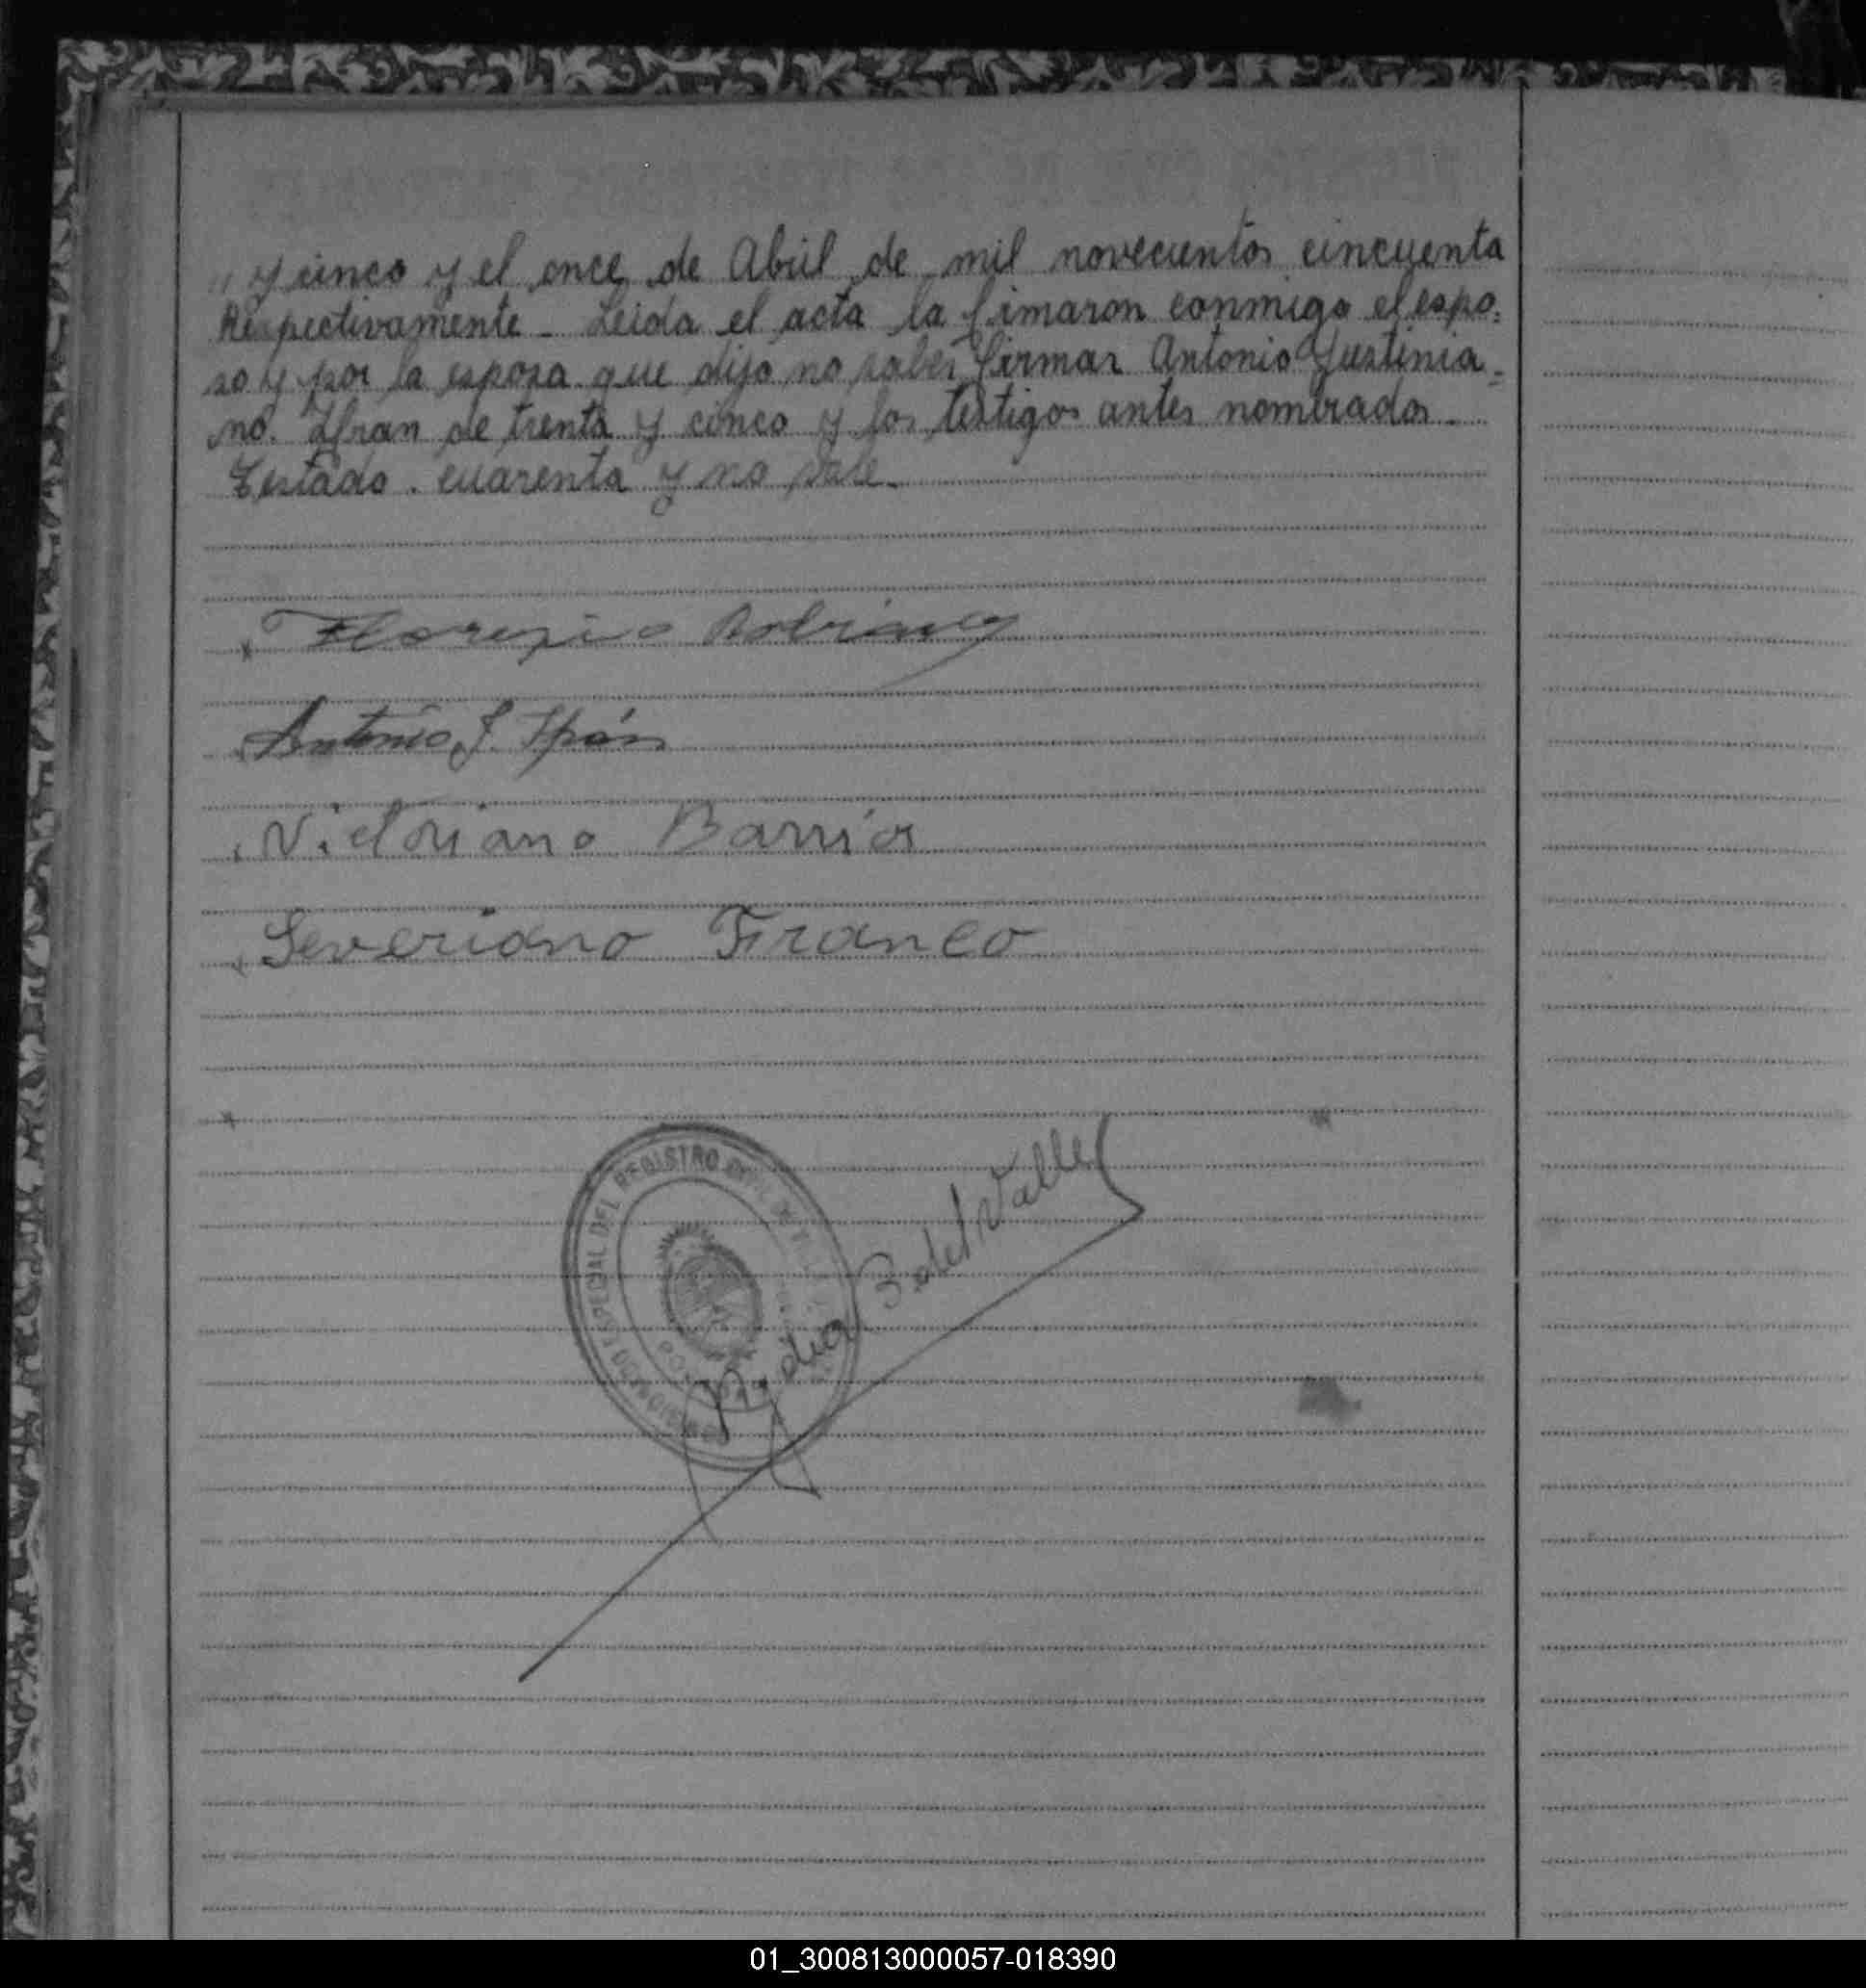 " y cinco y el once de Abril de mil novecientos cincuenta
Respectivamente - Leida el acta la fimaron conmigo el espo-
so y por la esposa que dijo no saber firmar Antonio Justinia-
no. Ifran de trenta y cinco y los testigos antes nombrados -
Testado. cuarenta y no vale.
Antonio J. Ifrán
Victoriano Barrios
Severiano Franco
ESPECIAL DEL REGISTRO CIVIL
del Valle
01_300813000057-018390